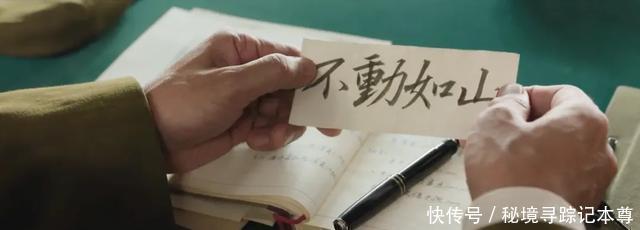 不動如山
快传号/秘境寻踪记本尊